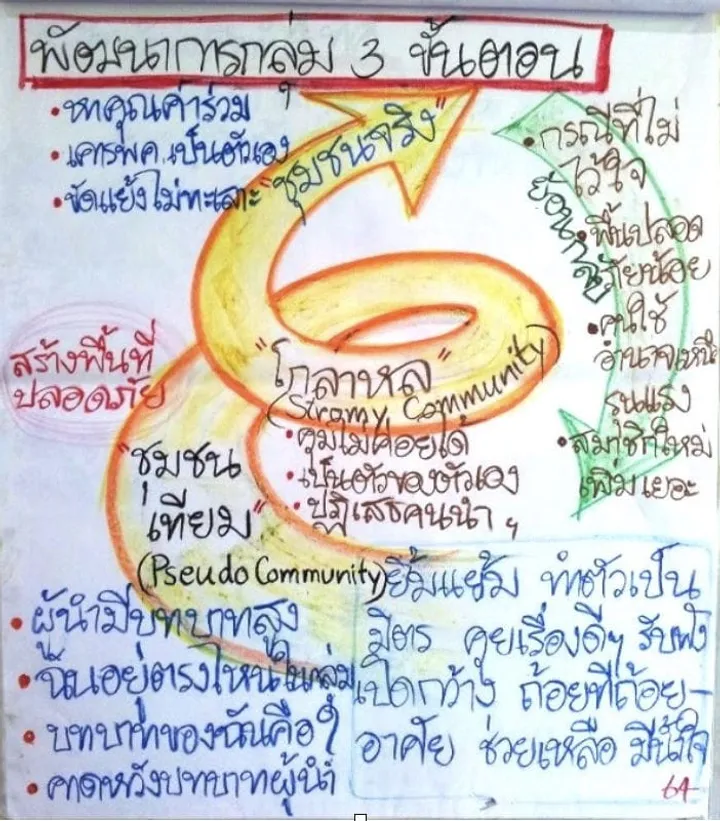 พัฒนาการกลุ่ม 3 ขั้นตอน
• หาคุณค่าร่วม
• เคารพค. เป็นตัวเอง
• ขัดแย้งไม่ทะเลาะ
"ชุมชนจริง"
• กรณีที่ไม่
ไว้ใจ
ย้อนกลับ
• พื้นปลอด
ภัยน้อย
• คนใช้
อำนาจเหนือ
รุนแรง
• สมาชิกใหม่
เพิ่มเยอะ
สร้างพื้นที่
ปลอดภัย
"โกลาหล"
(Stromy Community)
• คุมไม่ค่อยได้
• เป็นตัวของตัวเอง
• ปฏิเสธคนนำ ฯ
"ชุมชน
เทียม"
(Pseudo Community)
• ผู้นำมีบทบาทสูง
• ฉันอยู่ตรงไหนในกลุ่ม
• บทบาทของฉันคือ?
• คาดหวังบทบาทผู้นำ
ยิ้มแย้ม ทำตัวเป็น
มิตร คุยเรื่องดีๆ รับฟัง
เปิดกว้าง ถ้อยทีถ้อย-
อาศัย ช่วยเหลือ มีน้ำใจ
64